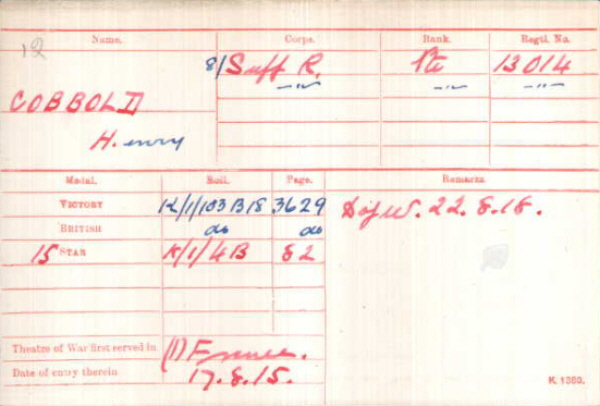 12
Name. Corps. Rank. Regtl. No.
8/Suff R. Pte 13014
-"- -"- -"-
COBBOLD
Henry
Medal. Roll. Page. Remarks.
VICTORY K/1/103B18 3629 D of W. 22.8.18.
BRITISH do do
15 STAR K/1/4B 82
Theatre of War first served in (1) France.
Date of entry therein 17.8.15.
K. 1380.